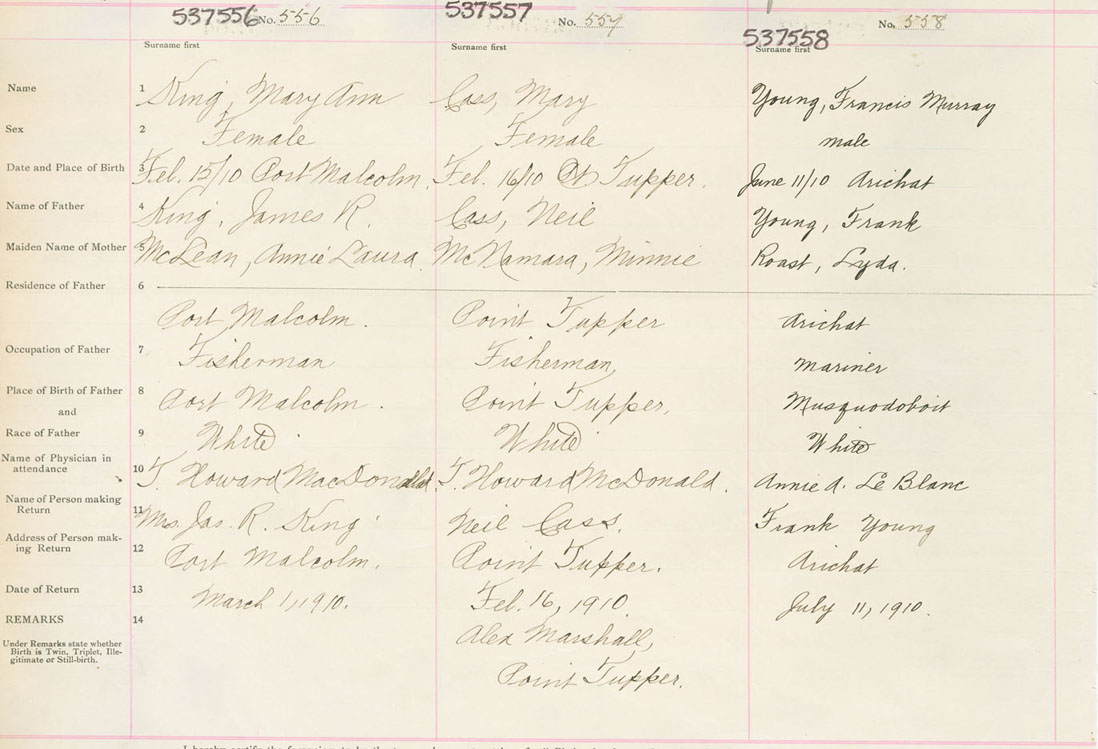 537556 No. 556 537557 No. 557 537558 No. 558
Surname first Surname first Surname first
Name 1 King, Mary Ann Cass, Mary Young, Francis Murray
Sex 2 Female Female male
Date and Place of Birth 3 Feb. 15/10 Port Malcolm. Feb. 16/10 Pt Tupper. June 11/10 Arichat
Name of Father 4 King, James R. Cass, Neil Young, Frank
Maiden Name of Mother 5 McLean, Annie Laura. McNamara, Minnie Roast, Lyda.
Residence of Father 6
Port Malcolm. Point Tupper Arichat
Occupation of Father 7 Fisherman Fisherman, Mariner
Place of Birth of Father 8 Port Malcolm. Point Tupper, Musquodoboit
and
Race of Father 9 White White White
Name of Physician in
attendance 10 J. Howard MacDonald. J. Howard McDonald. Annie A. Le Blanc
Name of Person making
Return 11 Mrs. Jas. R. King Neil Cass. Frank Young
Address of Person mak-
ing Return 12 Port Malcolm. Point Tupper. Arichat
Date of Return 13 March 1, 1910. Feb. 16, 1910 July 11, 1910.
REMARKS 14 Alex Marshall,
Under Remarks state whether
Birth is Twin, Triplet, Ille-
gitimate or Still-birth.
Point Tupper.